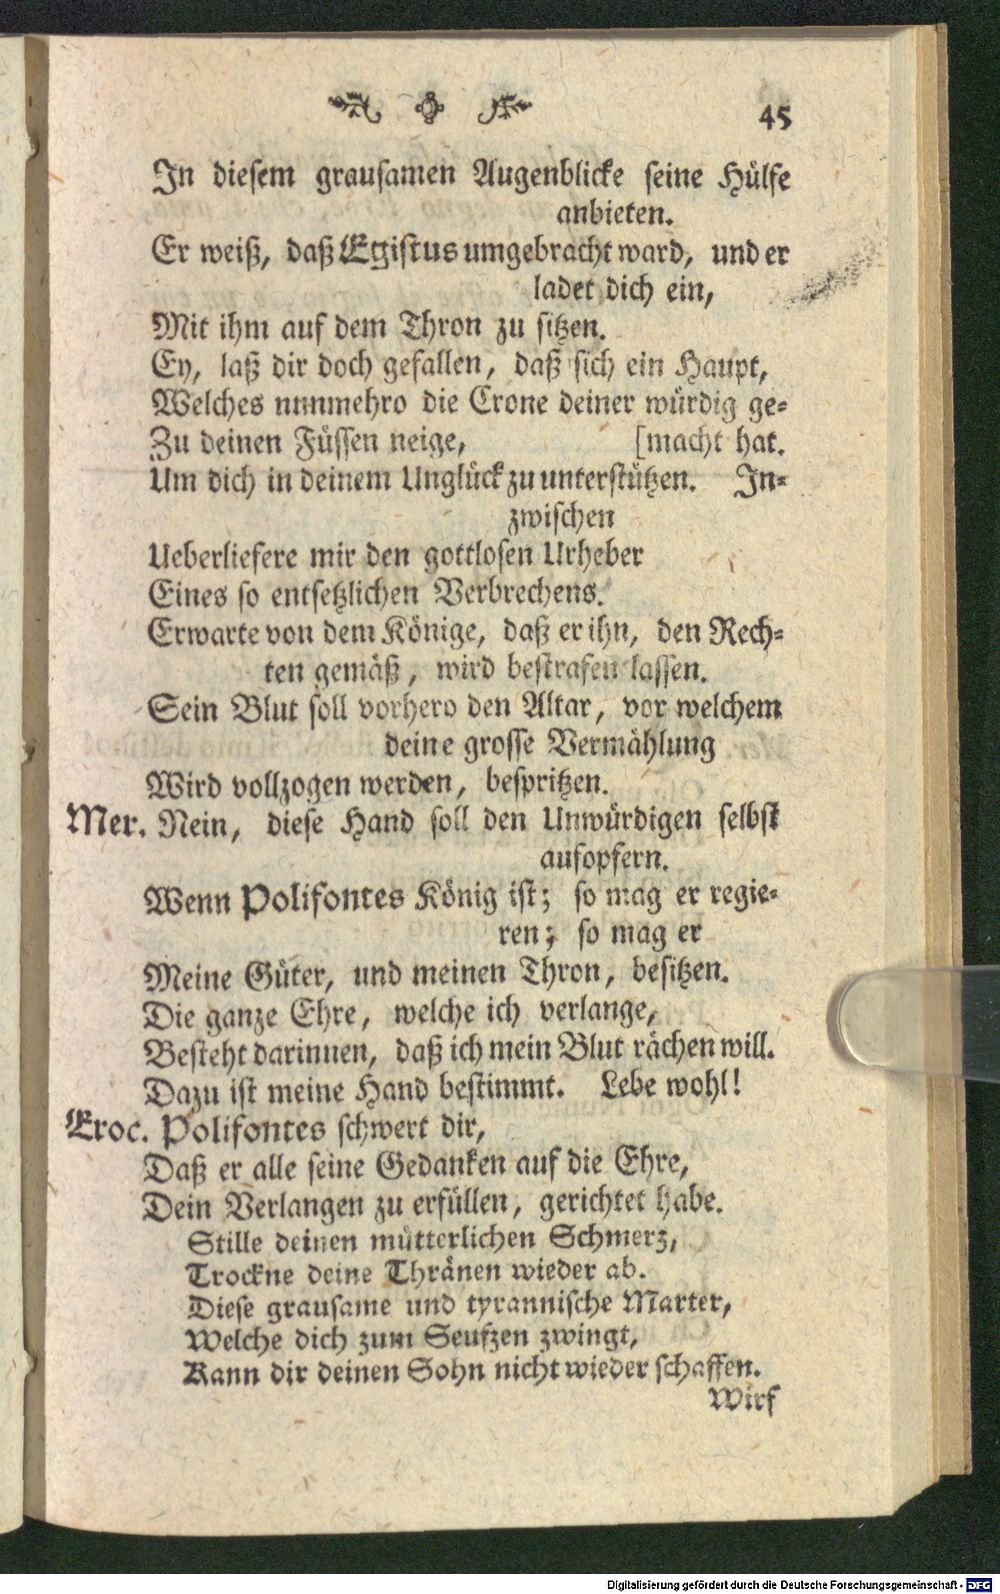 45
In diesem grausamen Augenblicke seine Hülfe
anbieten.
Er weiß, daß Egistus umgebracht ward, und er
ladet dich ein,
Mit ihm auf dem Thron zu sitzen.
Ey, laß dir doch gefallen, daß sich ein Haupt,
Welches nunmehro die Crone deiner würdig ge-
Zu deinen Füssen neige, [macht hat.
Um dich in deinem Unglück zu unterstützen. In-
zwischen
Ueberliefere mir den gottlosen Urheber
Eines so entsetzlichen Verbrechens.
Erwarte von dem Könige, daß er ihn, den Rech-
ten gemäß, wird bestrafen lassen.
Sein Blut soll vorhero den Altar, vor welchem
deine grosse Vermählung
Wird vollzogen werden, bespritzen.
Mer. Nein, diese Hand soll den Unwürdigen selbst
aufopfern.
Wenn Polifontes König ist; so mag er regie-
ren; so mag er
Meine Güter, und meinen Thron, besitzen.
Die ganze Ehre, welche ich verlange,
Besteht darinnen, daß ich mein Blut rächen will.
Dazu ist meine Hand bestimmt. Lebe wohl!
Eroc. Polifontes schwert dir,
Daß er alle seine Gedanken auf die Ehre,
Dein Verlangen zu erfüllen, gerichtet habe.
Stille deinen mütterlichen Schmerz,
Trockne deine Thränen wieder ab.
Diese grausame und tyrannische Marter,
Welche dich zum Seufzen zwingt,
Kann dir deinen Sohn nicht wieder schaffen.
Wirf
Digitalisierung gefördert durch die Deutsche Forschungsgemeinschaft - DFG